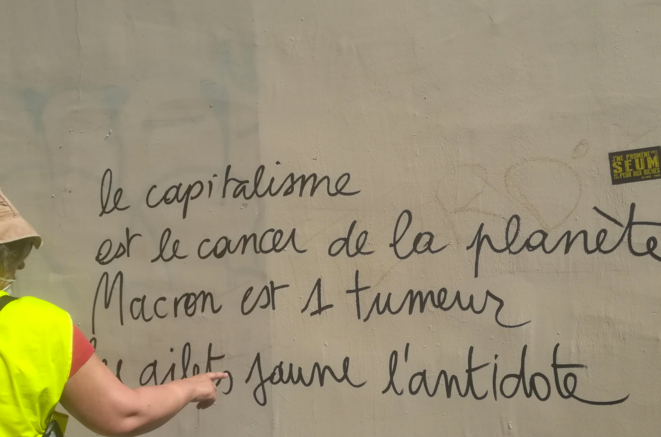 le capitalisme
est le cancer de la planète
Macron est 1 tumeur
gilets jaune l'antidote
SEUM